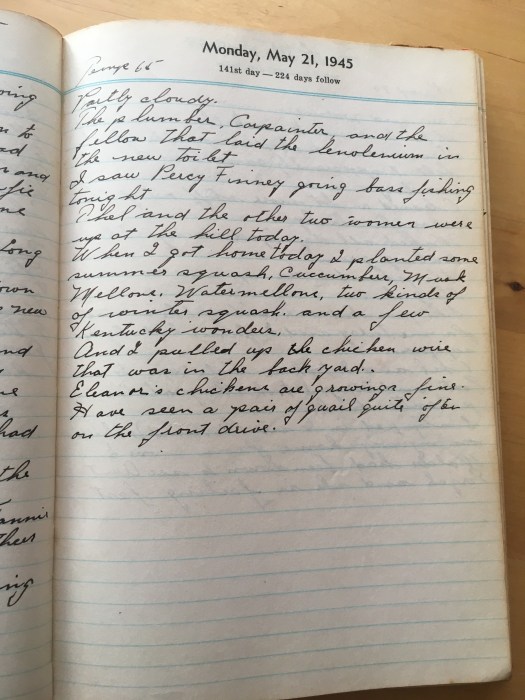 Monday, May 21, 1945
141st day — 224 days follow
65
Partly cloudy.
The plumber, Carpainter, and the
fellow that laid the lenolenium in
the new toilet
I saw Percy Finney going bass fishing
tonight
and the other two women were
up at the hill today.
When I got home today I planted some
summer squash, Cucumbers, Musk
Mellons, Watermellons, two kinds of
of winter squash. and a few
Kentucky wonders.
And I pulled up the chicken wire
that was in the back yard..
Eleanor's chickens are growings fine.
Have seen a pair of quail quite often
on the front drive.
oing
to
and
me
long
own
new
nd
had
the
ing